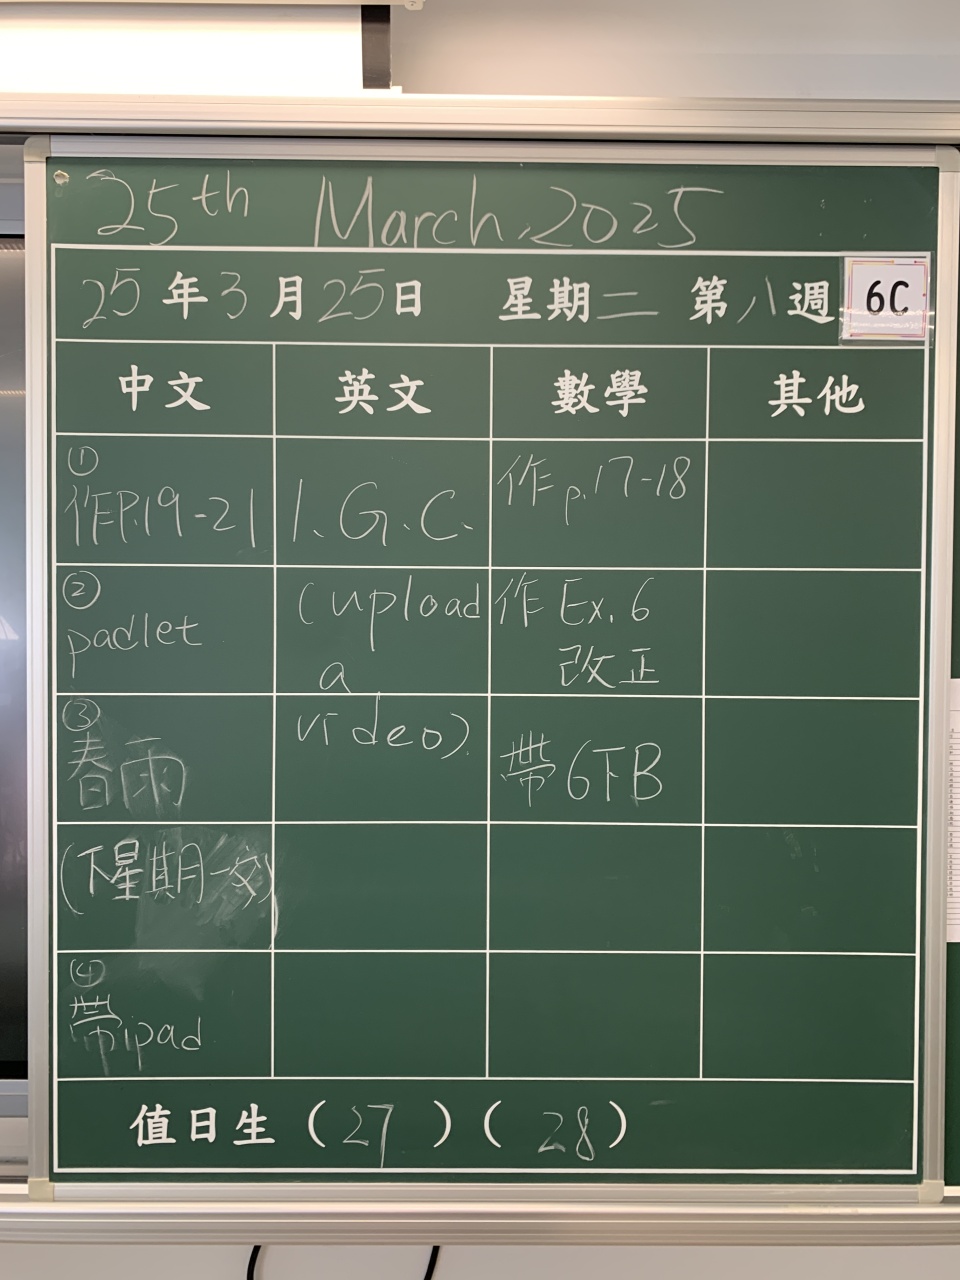 25th March, 2025
25年3月25日 星期二 第八週 6C
中文 英文 數學 其他
①
作P.19-21
②
padlet
③
春雨
(下星期一交)
④
帶ipad
1. G.C.
(upload
a
video)
作p.17-18
作Ex.6
改正
帶6下B
值日生(27)(28)